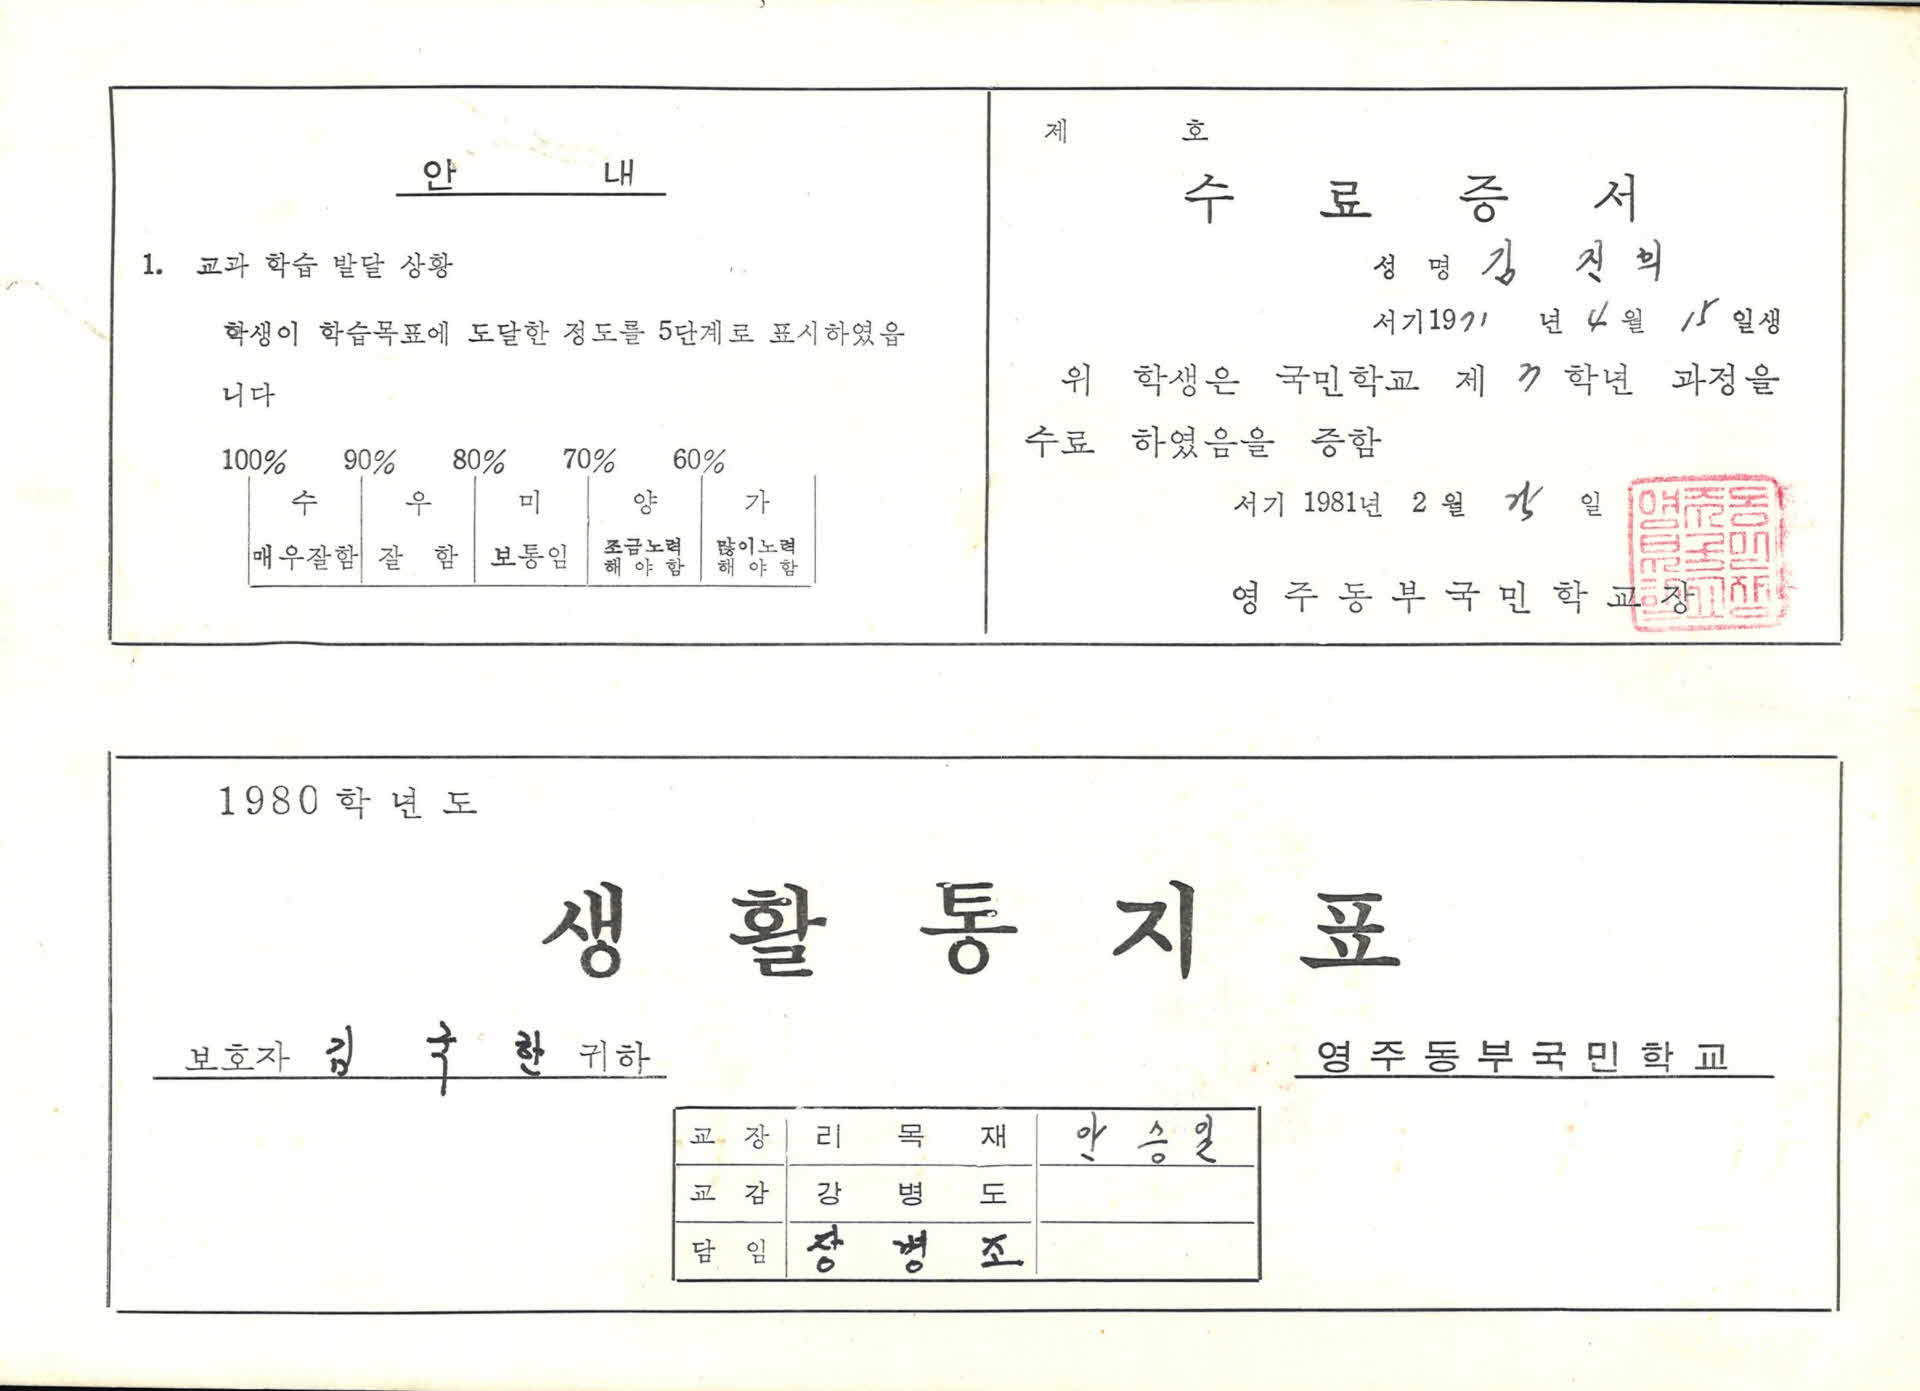 안 내
1. 교과 학습 발달 상황
학생이 학습목표에 도달한 정도를 5단계로 표시하였읍
니다
100% 90% 80% 70% 60%
수 우 미 양 가
매우잘함 잘 함 보통임 조금노력 해야함 많이노력 해야함
제 호
수 료 증 서
성 명 김 진 희
서기1971 년 4 월 15 일생
위 학생은 국민학교 제 3 학년 과정을
수료 하였음을 증함
서기 1981년 2 월 일
영 주 동 부 국 민 학 교 장
1980 학 년 도
생 활 통 지 표
보호자 김 국 한 귀하
영 주 동 부 국 민 학 교
교 장 리 목 재 안 승 일
교 감 강 병 도
담 임 장 병 조